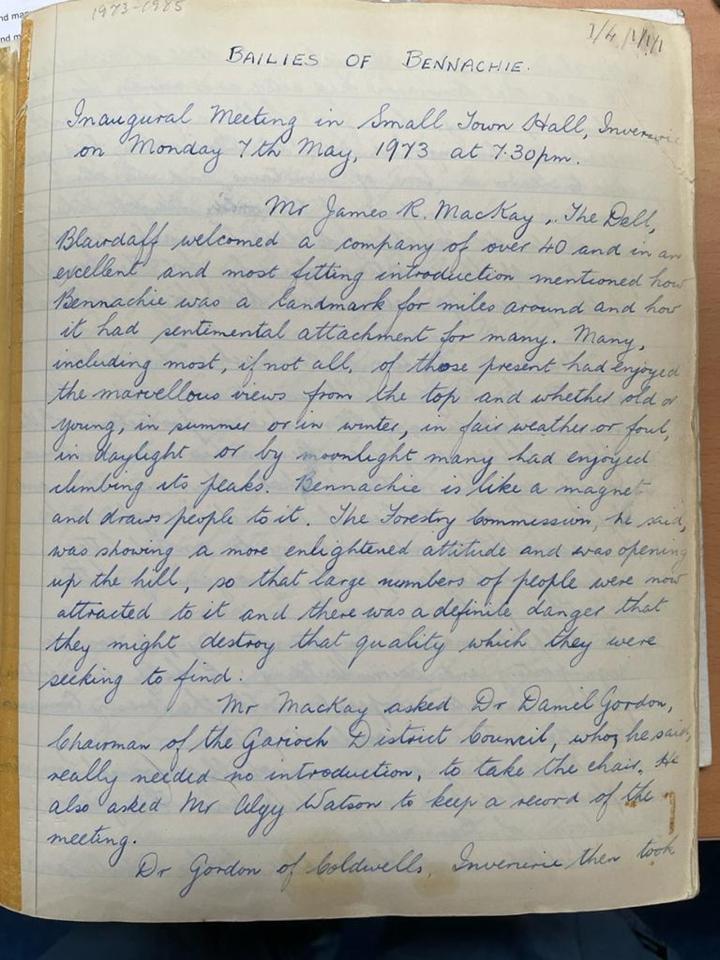 1973-1985
BAILIES OF BENNACHIE.
Inaugural Meeting in Small Town Hall, Inverurie
on Monday 7th May, 1973 at 7.30pm.
Mr James R. MacKay, The Dell,
Blairdaff welcomed a company of over 40 and in an
excellent and most fitting introduction mentioned how
Bennachie was a landmark for miles around and how
it had sentimental attachment for many. Many,
including most, if not all, of those present had enjoyed
the marvellous views from the top and whether old or
young, in summer or in winter, in fair weather or foul,
in daylight or by moonlight many had enjoyed
climbing its peaks. Bennachie is like a magnet
and draws people to it. The Forestry Commission, he said,
was showing a more enlightened attitude and was opening
up the hill, so that large numbers of people were now
attracted to it and there was a definite danger that
they might destroy that quality which they were
seeking to find.
Mr MacKay asked Dr Daniel Gordon,
Chairman of the Garioch District Council, who, he said,
really needed no introduction, to take the chair. He
also asked Mr Algy Watson to keep a record of the
meeting.
Dr Gordon of Coldwells, Inverurie then took